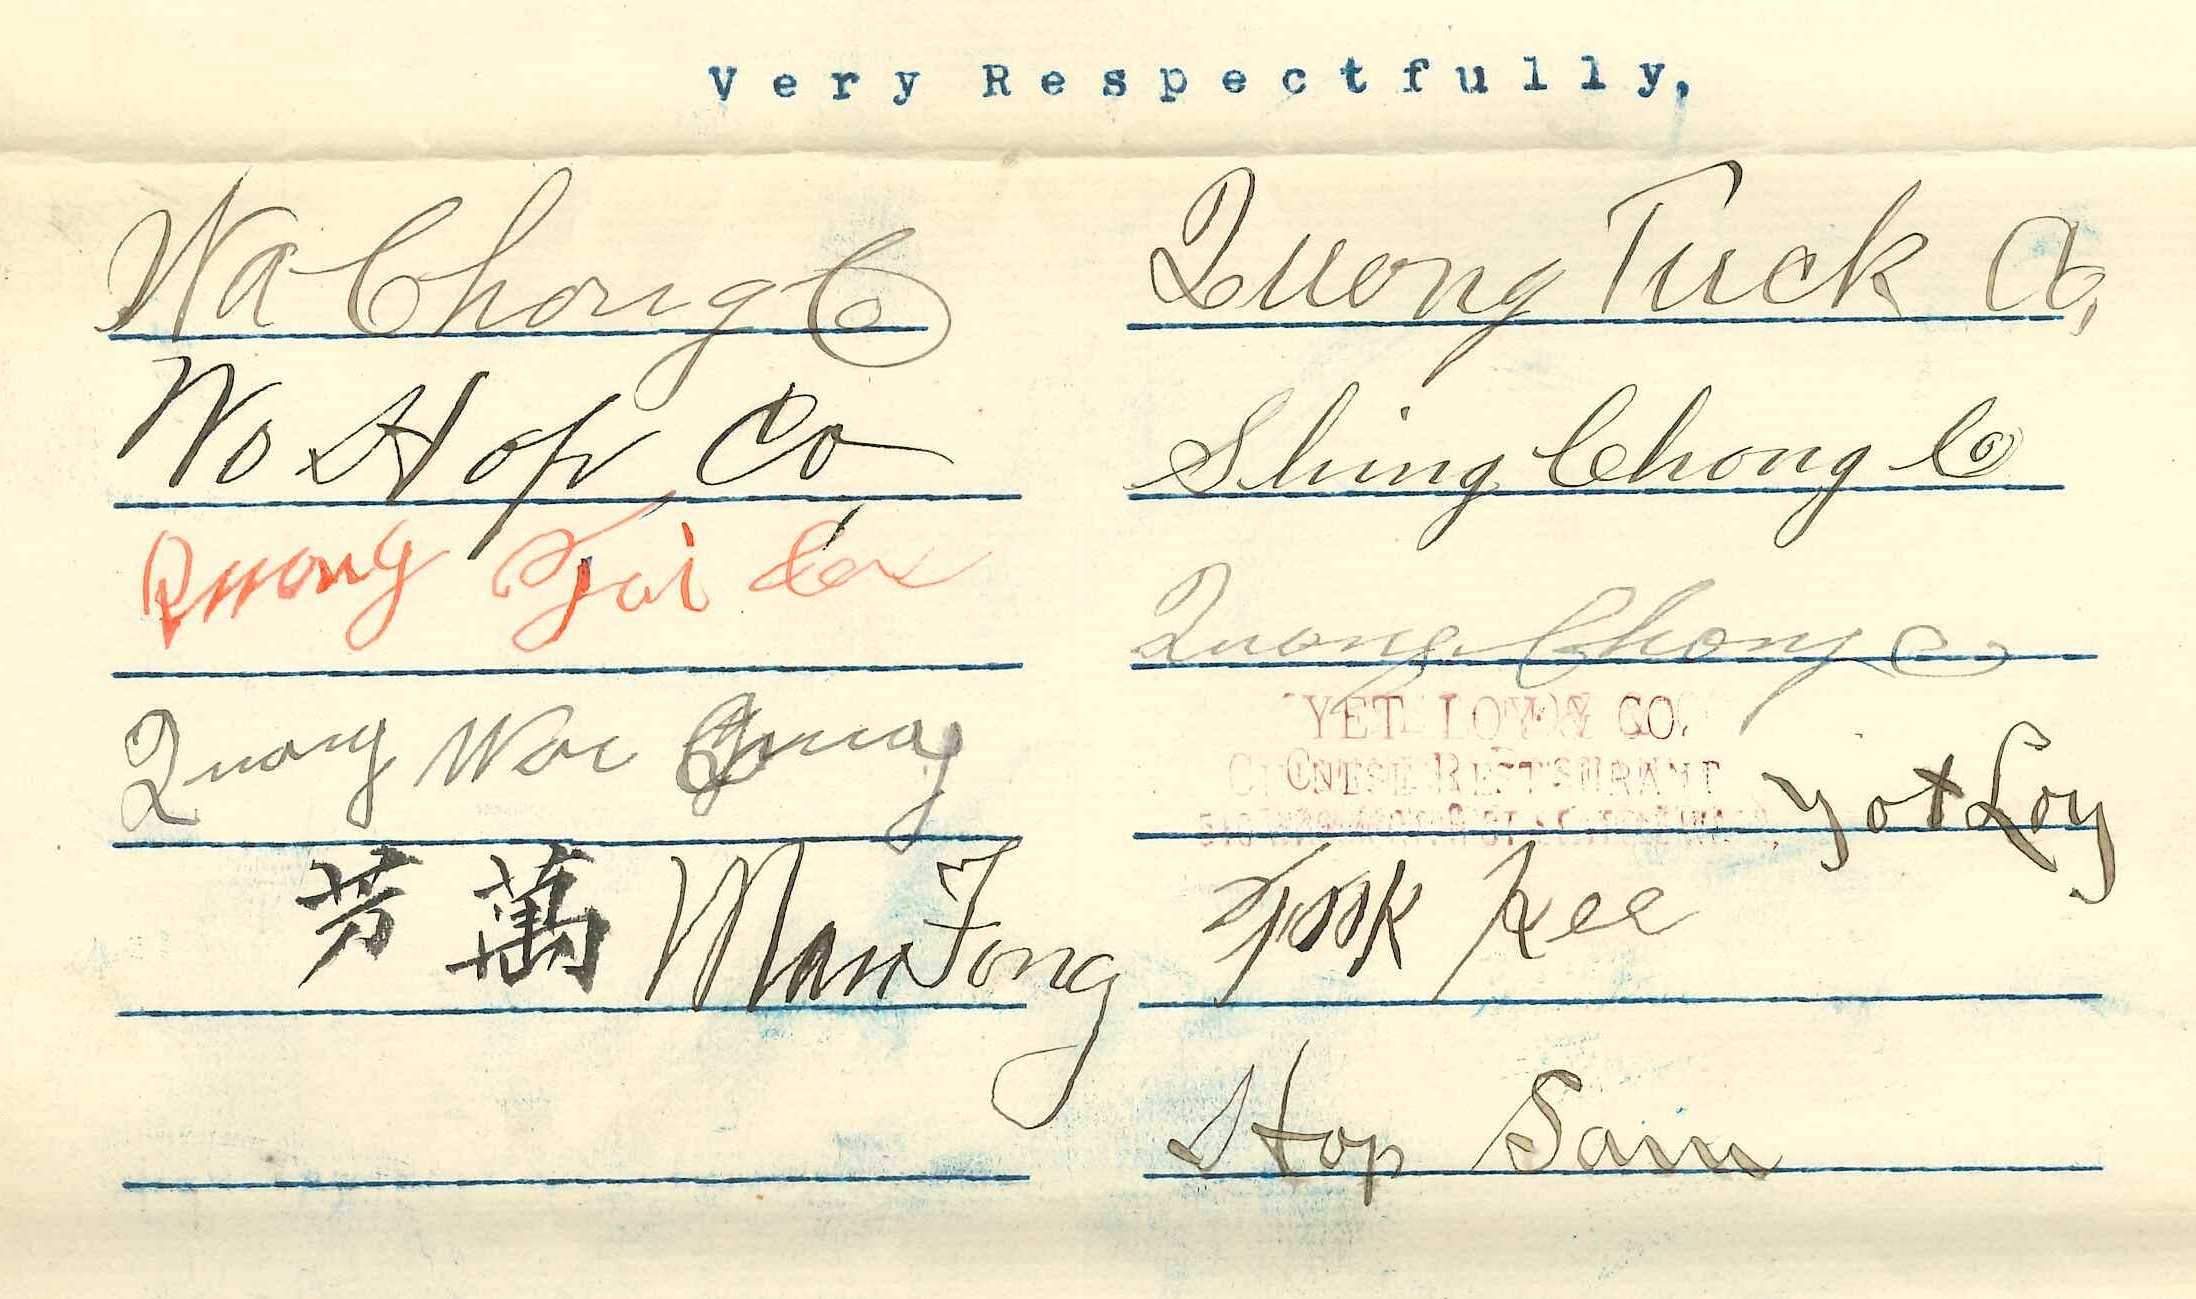 Very Respectfully,
Wa Chong Co
Wo Hop Co
Quong Tai Co
Quong Wa
芳 萬 Man Fong
Quong Tuck Co,
Shing Chong Co
Quong Chong Co
YET LOY & CO.
CHINESE RESTAURANT
Yot Loy
Took Kee
Hop Sam